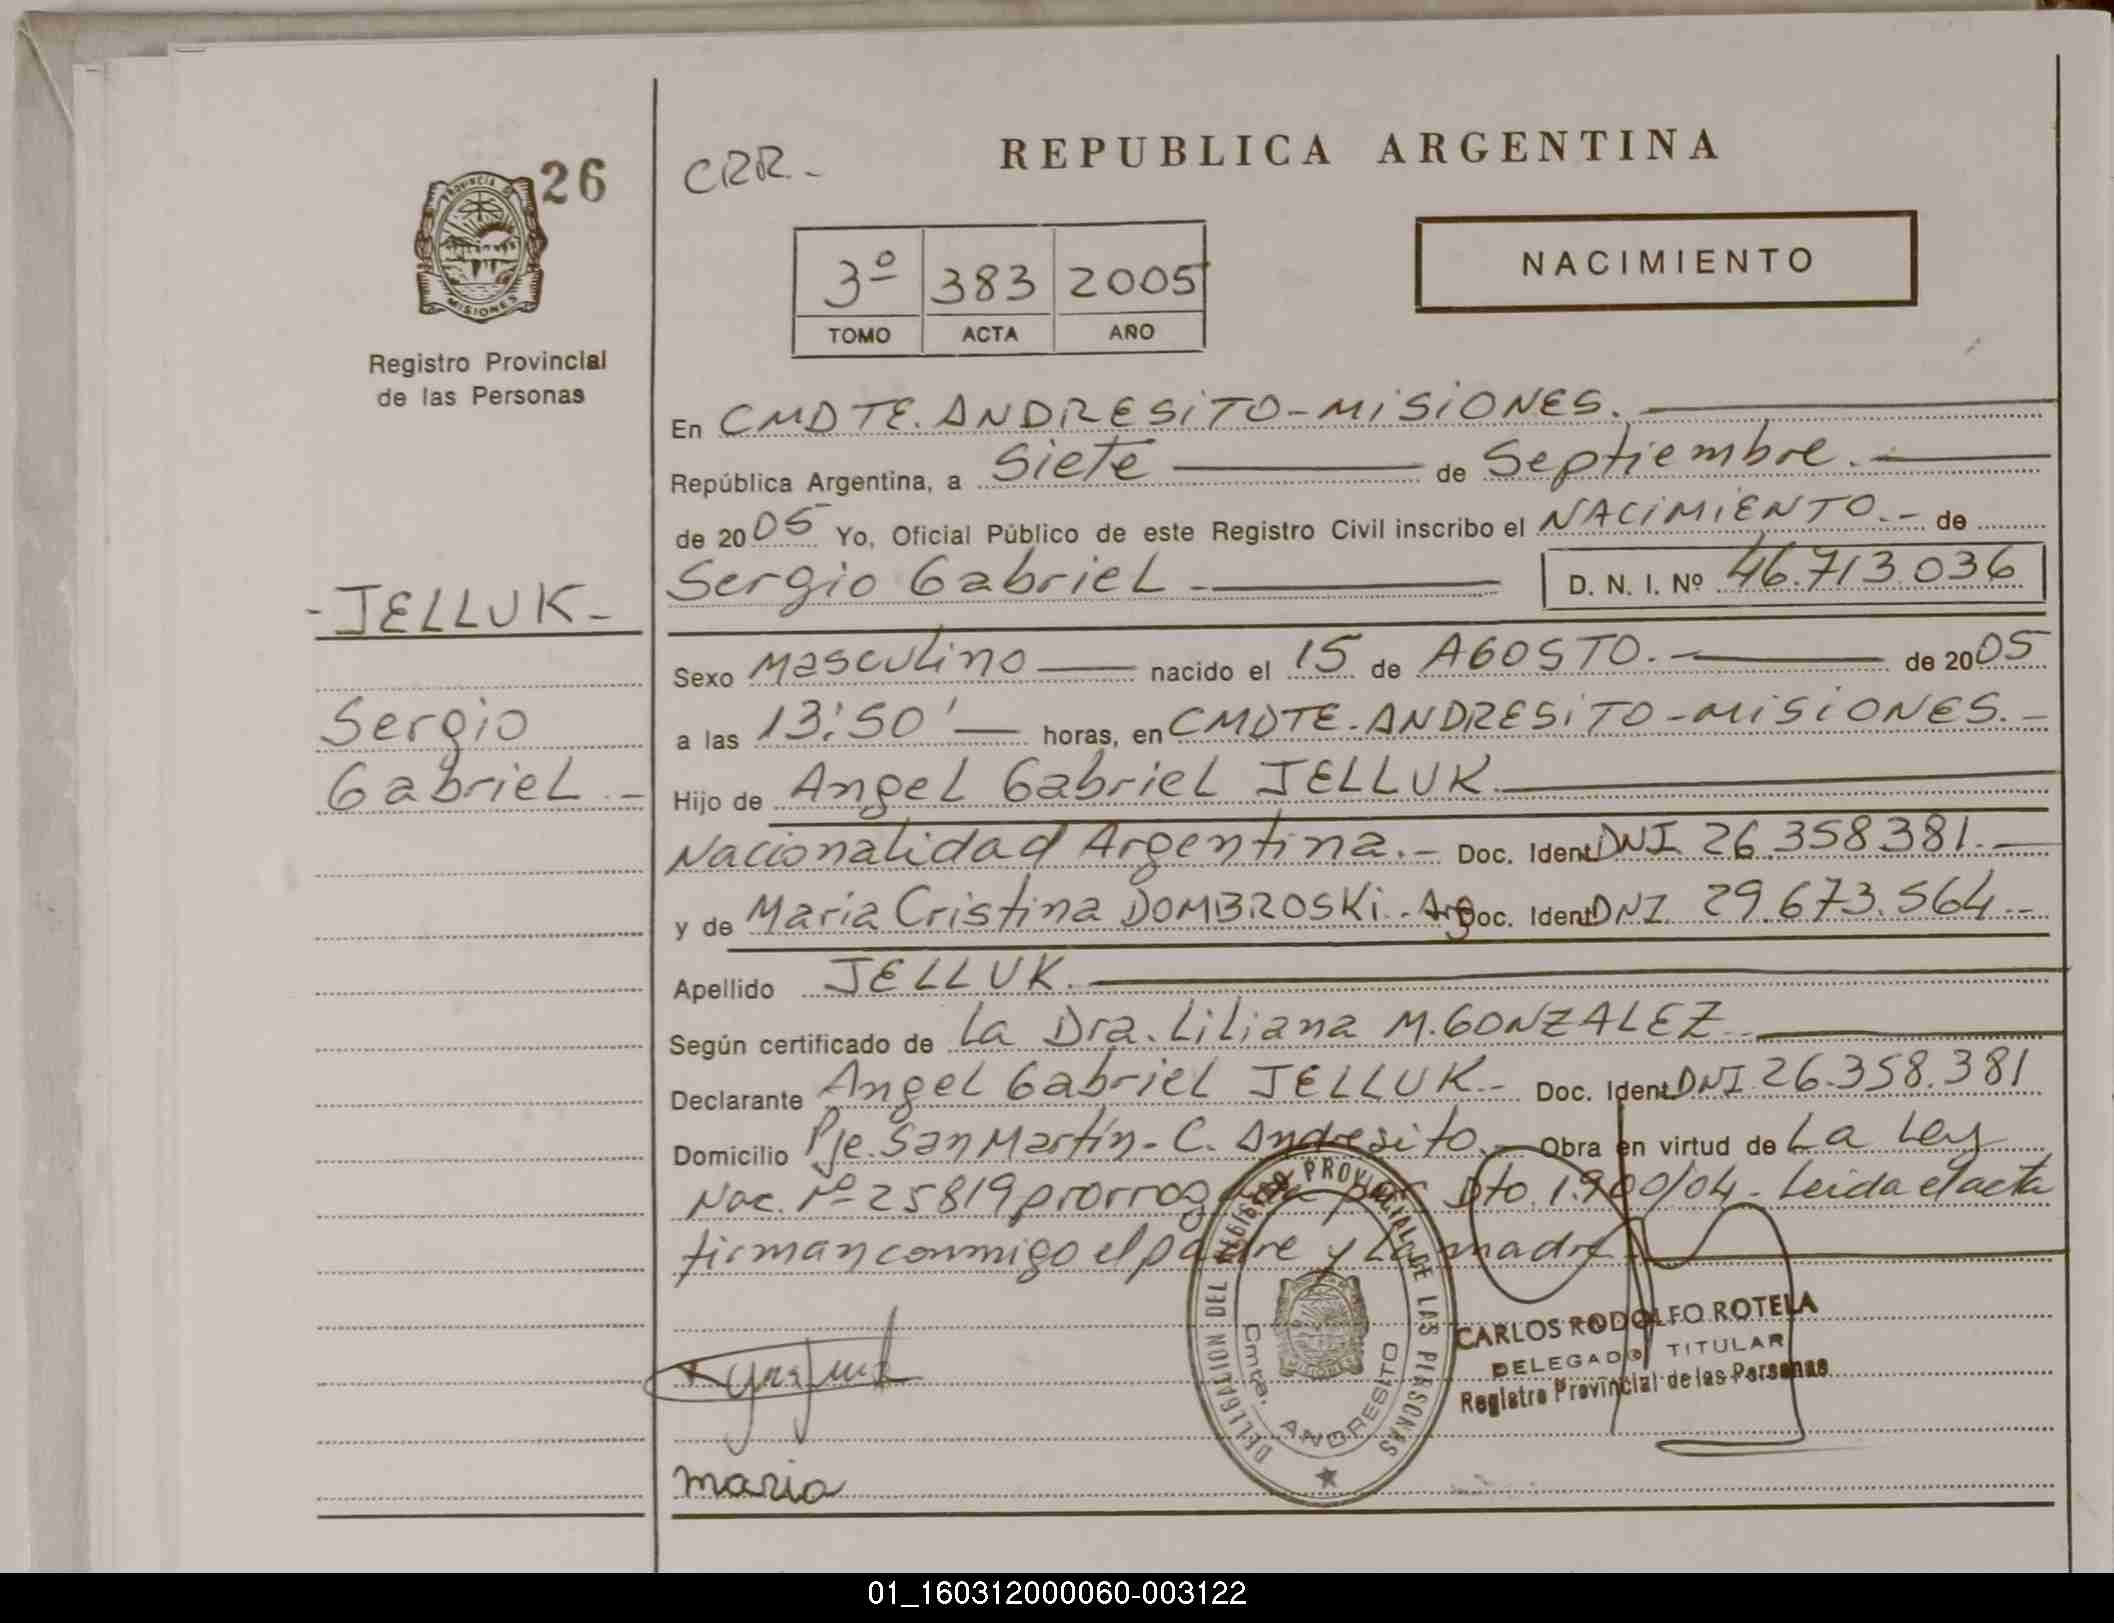 26
PROVINCIA DE
MISIONES
Registro Provincial
de las Personas
- JELLUK -
Sergio
Gabriel -
CRR -
REPUBLICA ARGENTINA
3º 383 2005
TOMO ACTA AÑO
NACIMIENTO
En CMDTE. ANDRESiTO - MiSiONES.
República Argentina, a Siete de Septiembre.
de 2005 Yo, Oficial Público de este Registro Civil inscribo el NACiMiENTO. - de
Sergio Gabriel - D. N. I. Nº 46.713.036
Sexo Masculino nacido el 15 de AGOSTO. - de 2005
a las 13:50' horas, en CMDTE. ANDRESiTO - MiSiONES. -
Hijo de Angel Gabriel JELLUK.
Nacionalidad Argentina. - Doc. Ident DNI 26.358.381. -
y de Maria Cristina DOMBROSKi. - Arg Doc. Ident DNI 29.673.564. -
Apellido JELLUK.
Según certificado de La Dra. Liliana M. GONZALEZ.
Declarante Angel Gabriel JELLUK. - Doc. Ident DNI 26.358.381
Domicilio Pje. San Martín - C. Andresito. - Obra en virtud de La Ley
Nac. Nº 25819 prorrogada por Dto. 1.900/04. - Leida el acta
firman conmigo el padre y la madre.
DELEGACION DEL REGISTRO PROVINCIAL DE LAS PERSONAS
Cmte. ANDRESITO
CARLOS RODOLFO ROTELA
DELEGADO TITULAR
Registro Provincial de las Personas
maria
01_160312000060-003122